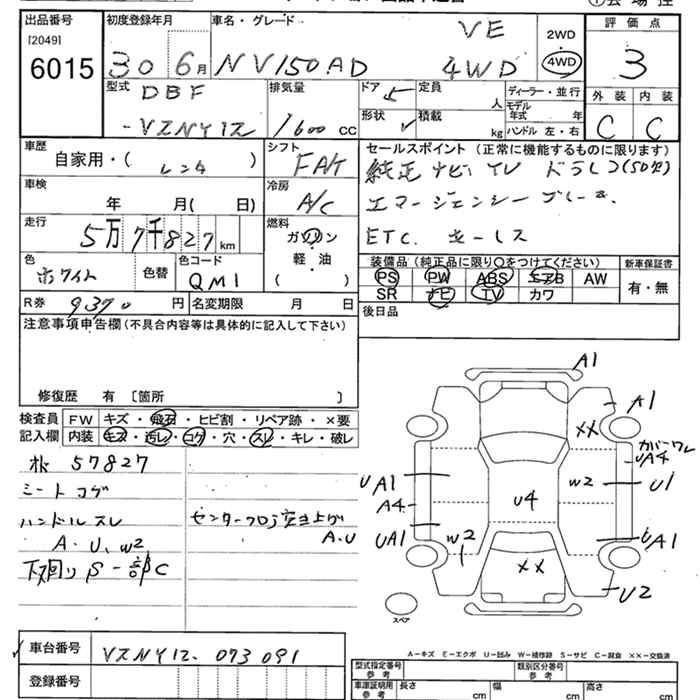 出品番号 初度登録年月 車名・グレード 評価点
[2049]
6015 30 6月 NV150AD VE 4WD 2WD・4WD 3
型式 DBF 排気量 ドア 定員 人 ディーラー・並行 外装 内装
-VZNY12 1600 CC 形状 積載 kg モデル年式 年 C C
ハンドル 左・右
車歴 シフト セールスポイント(正常に機能するものに限ります)
自家用・(レンタ) FAT 純正ナビ、TV ドラレコ(50欠)
車検 冷房 エマージェンシーブレーキ
年 月( 日) A/C
走行 燃料
5万7千827km ガソリン・軽油( ) ETC. キーレス
色 色替 色コード 装備品(純正品に限り○をつけてください) 新車保証書
ホワイト QM1 PS PW ABS エアB AW 有・無
SR ナビ TV カワ
R券 9370円 名変期限 月 日 後日品
注意事項申告欄(不具合内容等は具体的に記入して下さい)
修復歴 有〔箇所 〕
検査員 FW キズ・飛石・ヒビ割・リペア跡・×要
記入欄 内装 キズ・汚レ・コゲ・穴・スレ・キレ・破レ
57827
シートコゲ
ハンドルスレ センターフロア突き上げ
A.U、W2 A.U
下廻りS一部C
A1
A1
XX
カバーワレ
UA4
UA1 W2 U1
A4 U4
UA1 W2 UA1
XX
U2
スペア
A-キズ E-エクボ U-凹み W-補修跡 S-サビ C-腐食 XX-交換済
車台番号 VZNY12-073091
登録番号
型式指定番号 参考 類別区分番号 参考
車庫証明用 参考 長さ cm 幅 cm 高さ cm